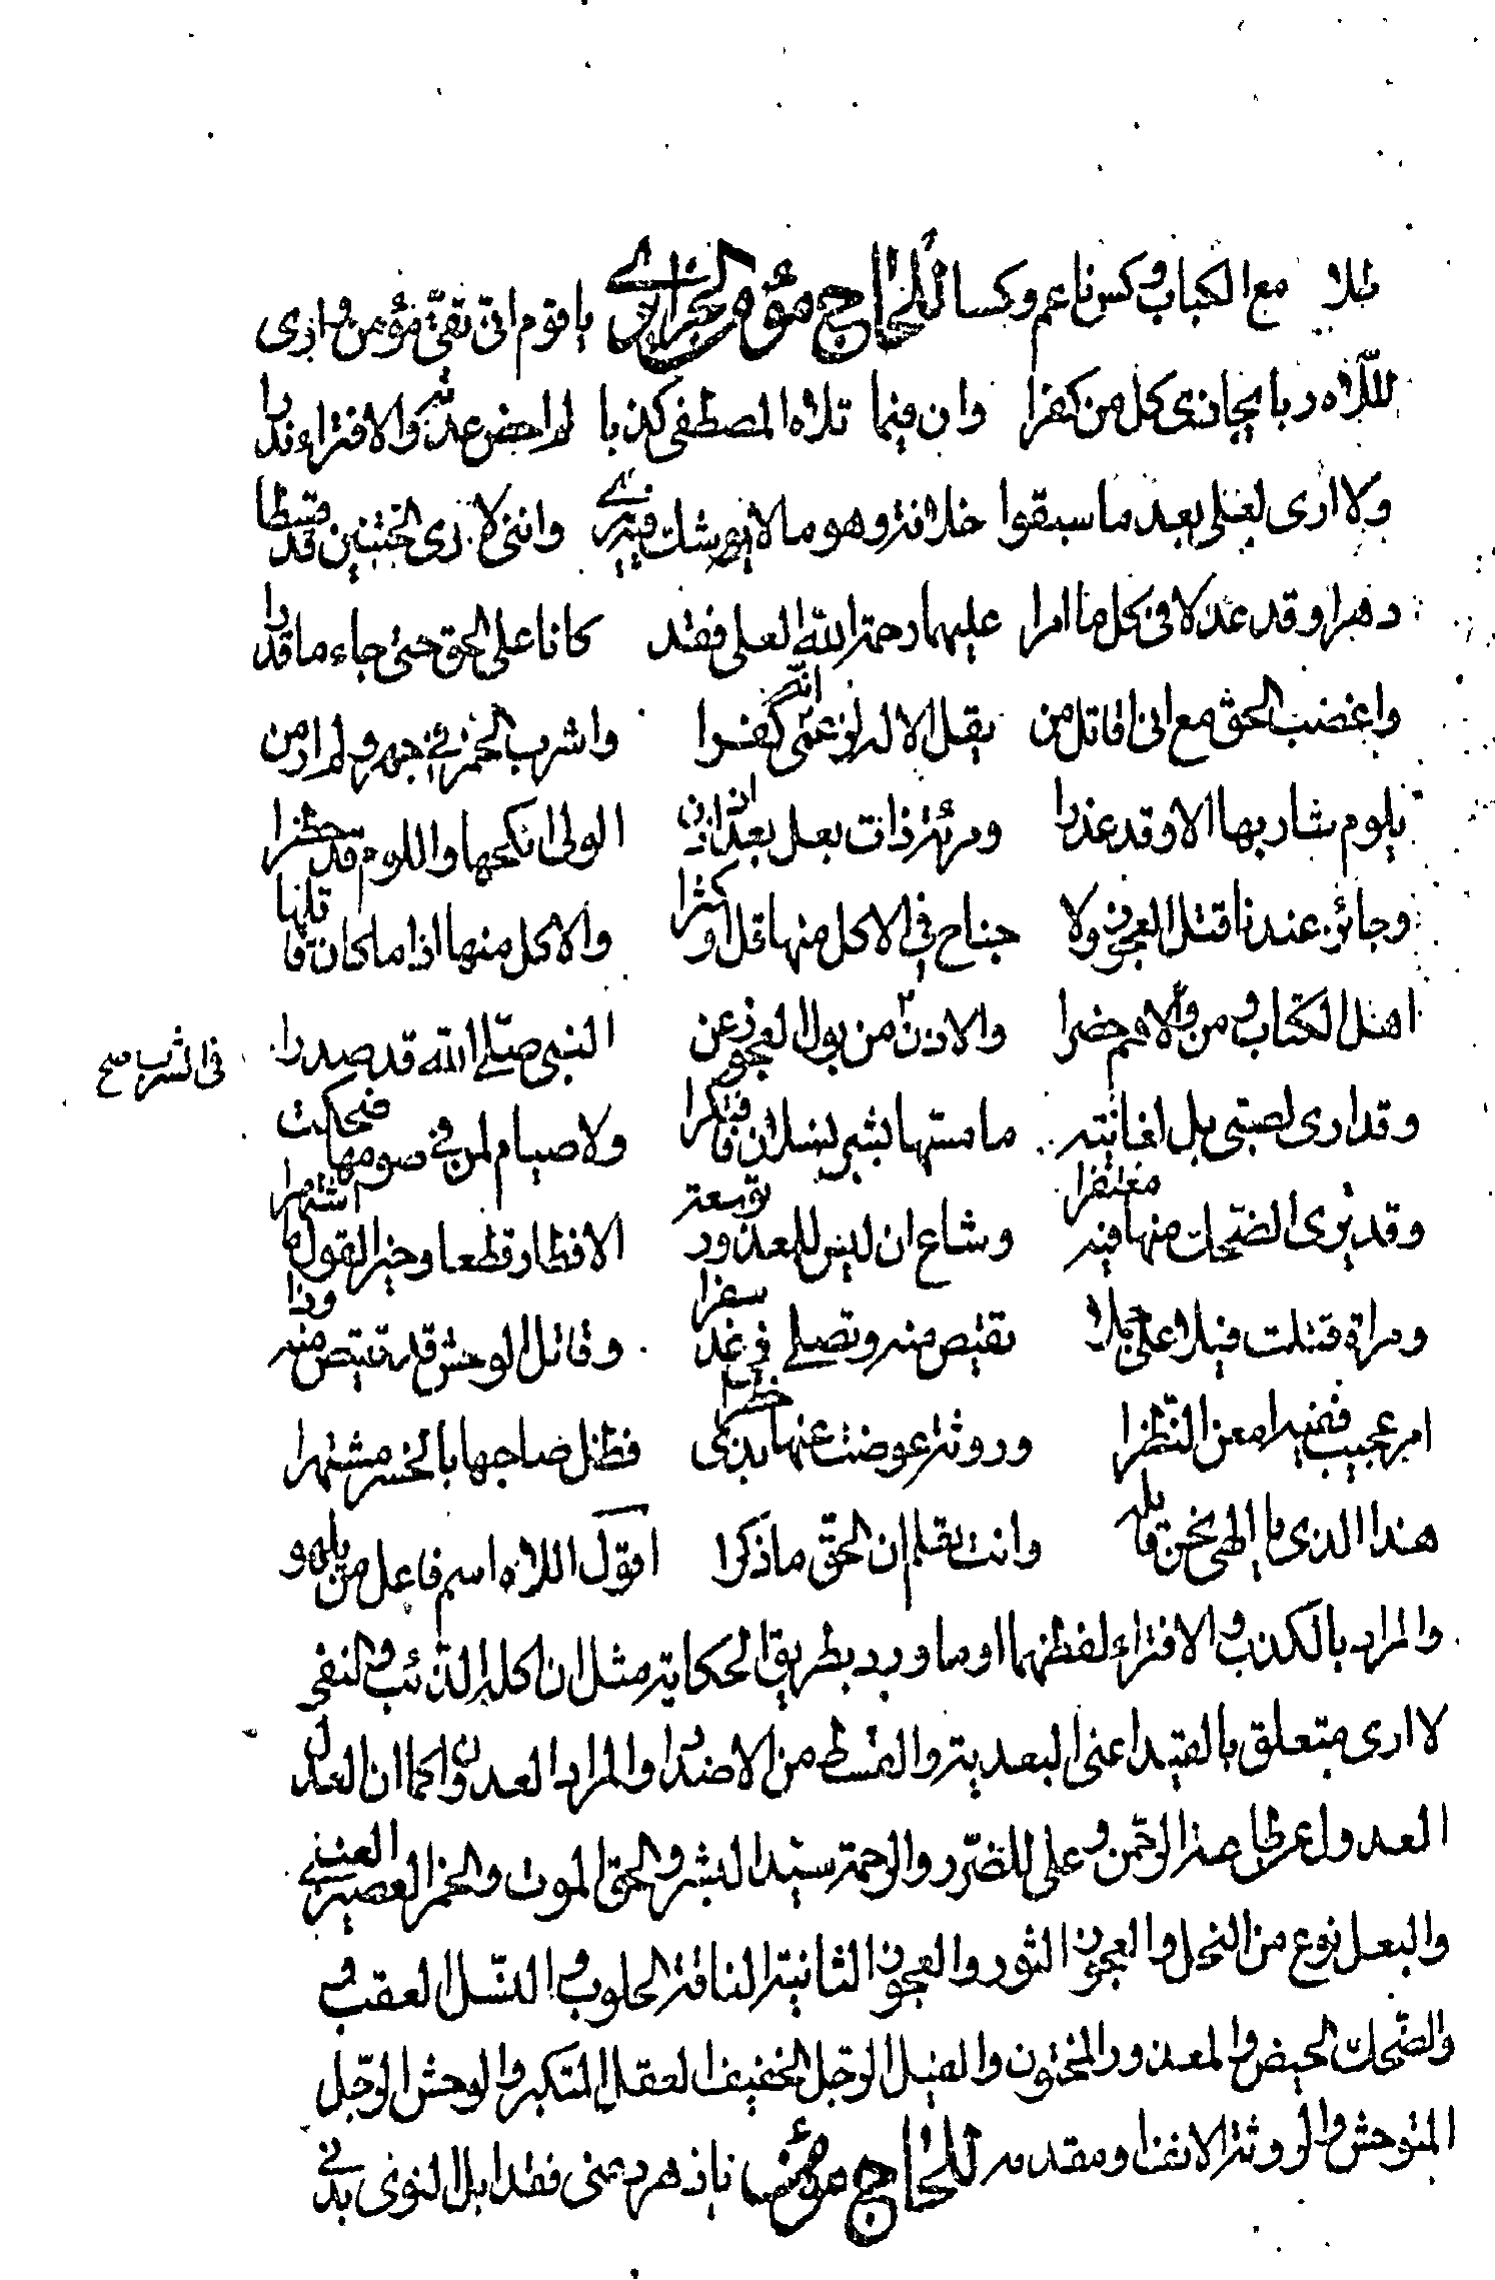 طلا مع الكباب وكس ناعم وكسا للحاج مؤمن الجزائري يا قوم اني تقيّ مؤمن وارى
للاه ربا يجازي كل من كفرا وان فيما تلاه المصطفى كذبا لم احض عدته والافتراء ندرا
ولا ارى لعلي بعد ما سبقوا خلافة وهو ما لا شك فيه يرى وانني لارى الختنين قد قسطا
دهرا وقد عدلا في كل ما امرا عليهما رحمة الله العلي فقد كانا على الحق حتى جاء ما قدرا
وابغض الحق مع اني اقاتل من يقل الاله لزعمي انه كفرا واشرب الخمر في جهر ولم ار من
يلوم شاربها الا وقد عذرا ومرئة ذات بعل بعد ان اذن الولي انكحها واللوم قد حظرا
وجائز عندنا قتل العجوز ولا جناح في الاكل منها قل او كثرا والاكل منها اذا ما كان قاتلها
اهل الكتاب ومن والاهم حضرا والاذن من بول العجوز عن النبي صلى الله قد صدرا
في الشرب صح
وقد ارى لصبتي بل لغانية ما مستها بشر نسلان فابتكرا ولا صيام لمن في صومها ضحكت
وقد يرى الضحك منها فيه مغتفرا وشاع ان ليس للمعذور توسعة الافطار قطعا وخير القول ما اشتهرا
ومراة قتلت فيلا على جملا تقتص منه وتصلى في غد سقرا وقاتل الوحش قد يقتص منه وذا
امر عجيب ففيه امعن النظرا وروثة عوضت عنها بذي خطر فظل صاحبها بالخسر مشتهرا
هذا الذي يا الهي نحن قائله وانت تعلم ان الحق ما ذكرا اقول اللاه اسم فاعل من يلهو
والمراد بالكذب والافتراء لفظهما او ما ورد بطريق الحكاية مثل ان اكله الذئب والنفي
لا ارى متعلق بالقيد اعني البعدية والقسط من الاضداد والمراد العدل كما ان العدل
العدول عن طاعة الرحمن وعلى للضرر والرحمة سيد البشر والحق الموت والخمر العصير العنبي
والبعل نوع من النخل والعجوز الثور والعجوز الثانية الناقة الحلوب والنسل العقب و
والضحك الحيض والمعذور المختون والفيل الرجل الخفيف العقل المتكبر والوحش الرجل
المتوحش والروثة الانف ومقدمه للحاج مؤمن ناذهر دعني فقد ابلى النوى بدني